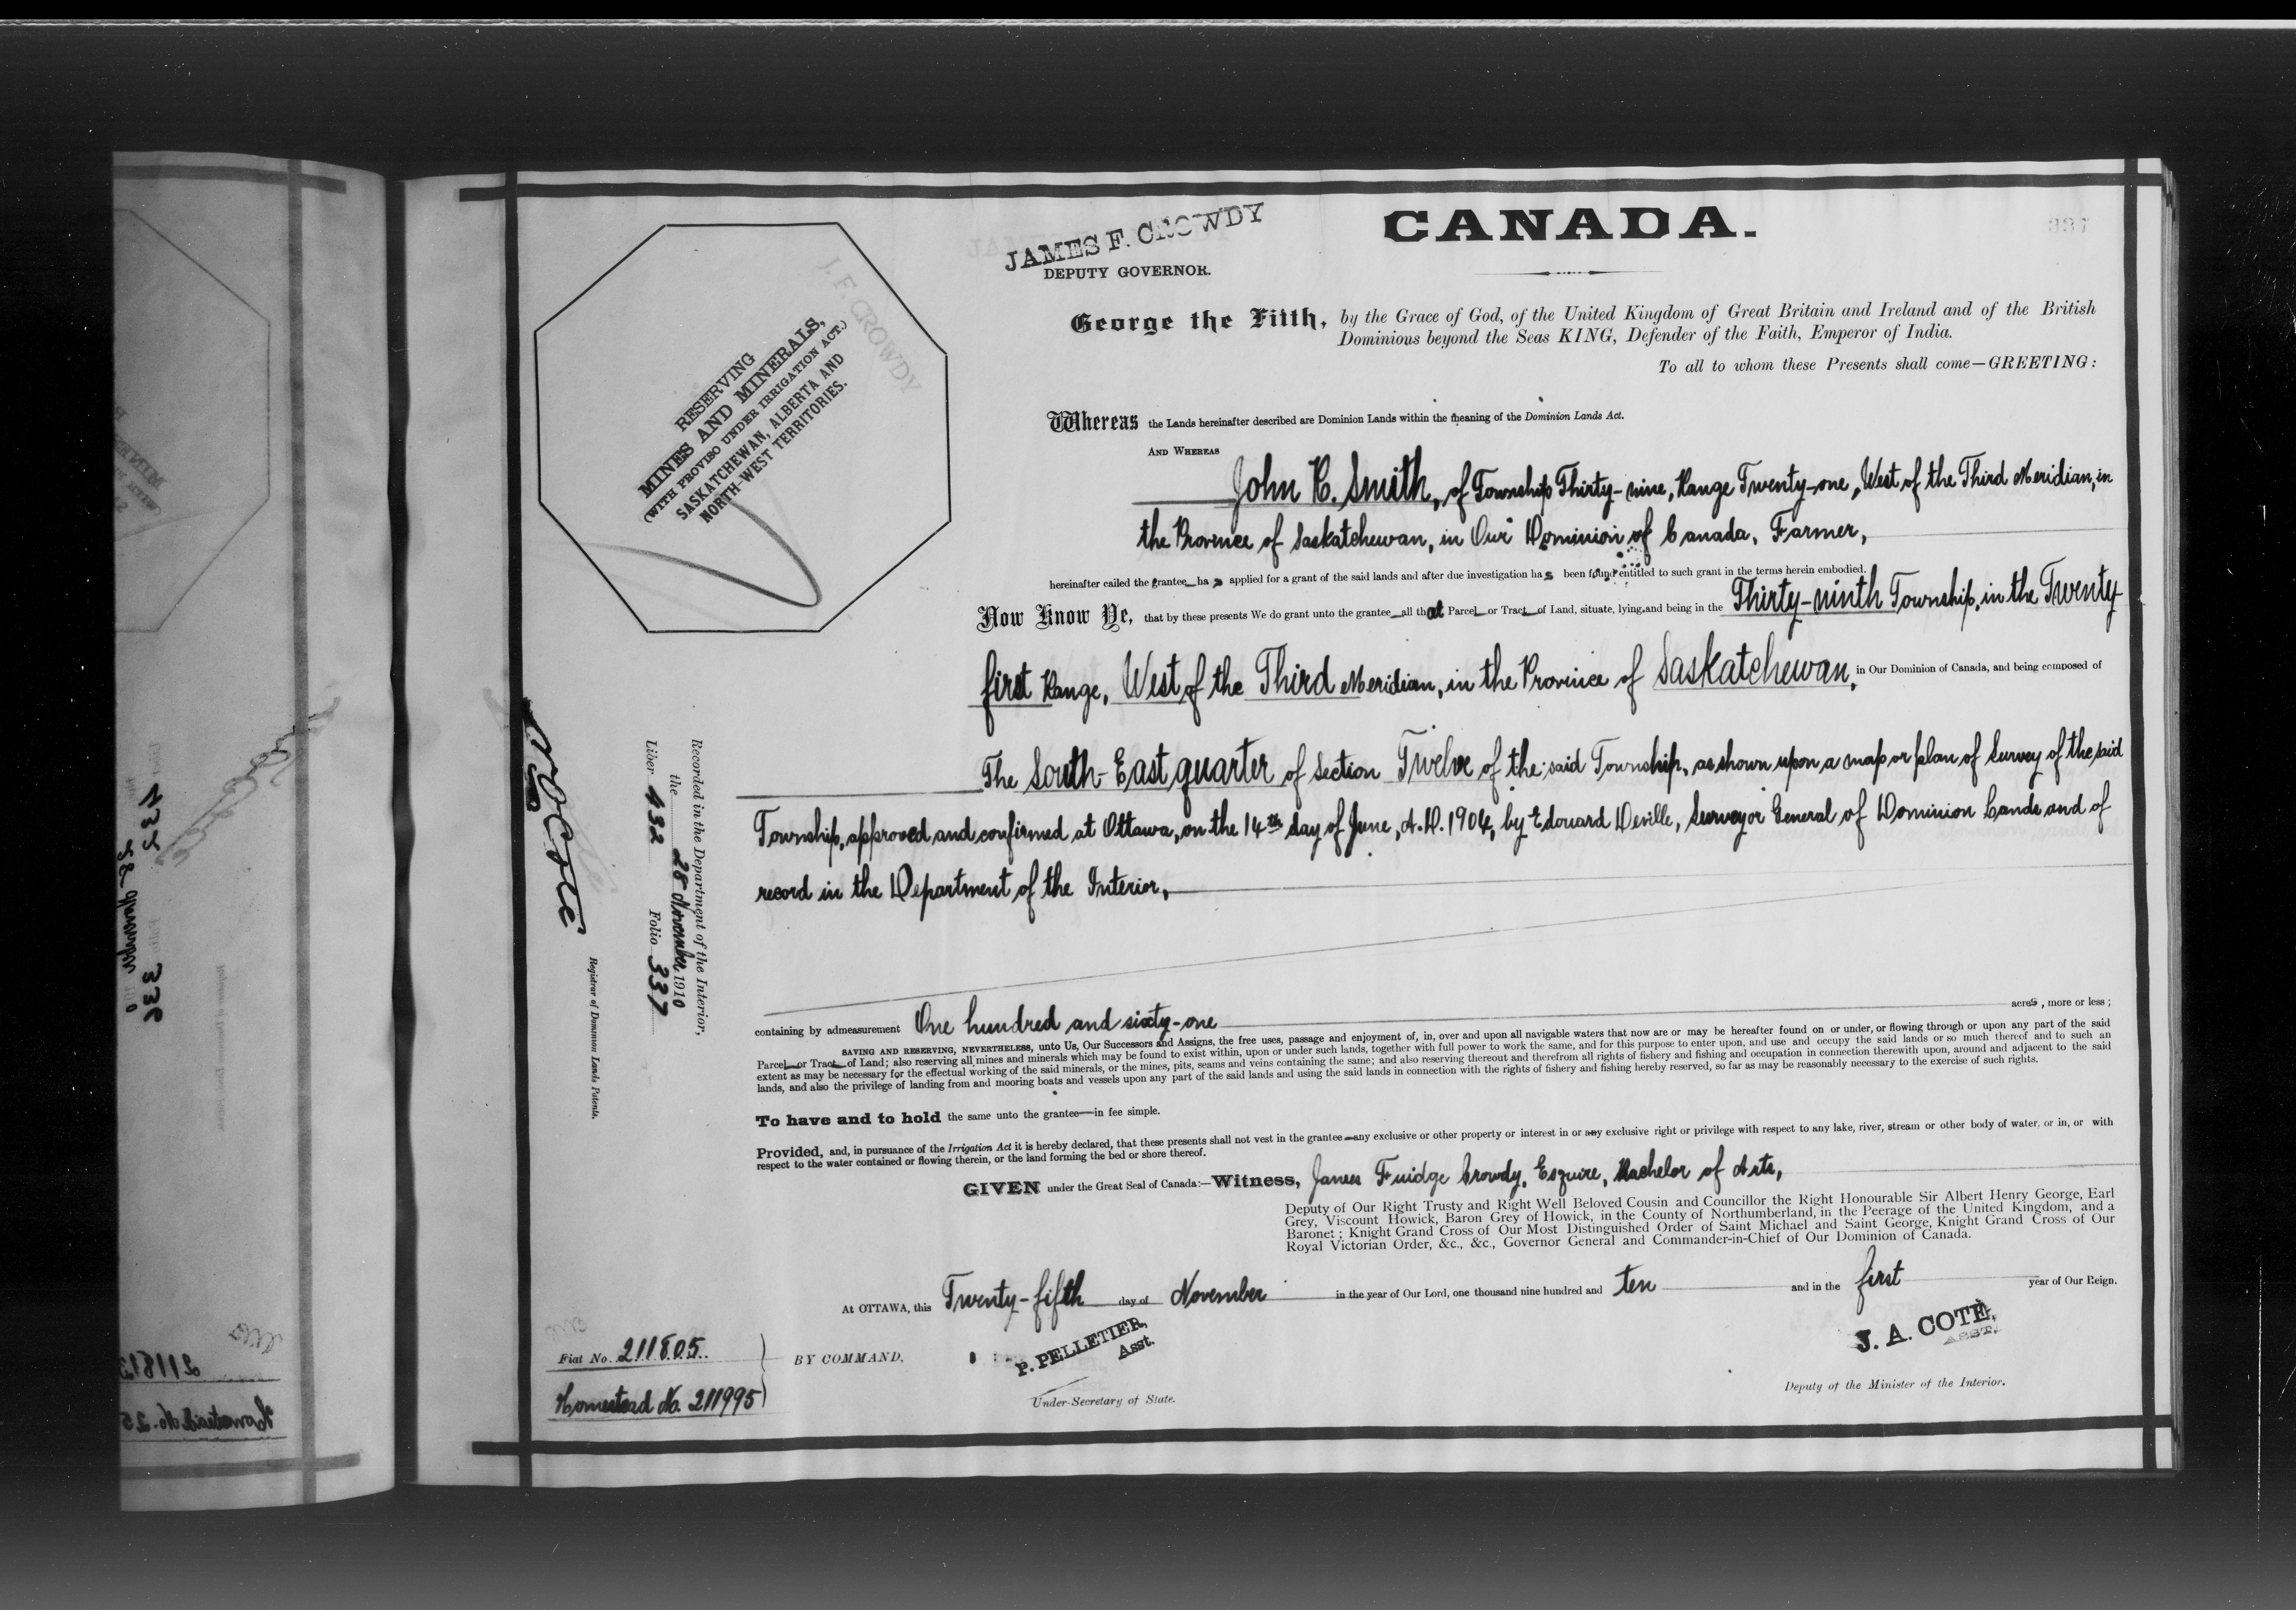 337
CANADA.
JAMES F. CROWDY
DEPUTY GOVERNOR.
J. F. CROWDY
RESERVING
MINES AND MINERALS,
(WITH PROVISO UNDER IRRIGATION ACT.)
SASKATCHEWAN, ALBERTA AND
NORTH-WEST TERRITORIES.
George the Fifth, by the Grace of God, of the United Kingdom of Great Britain and Ireland and of the British
Dominions beyond the Seas KING, Defender of the Faith, Emperor of India.
To all to whom these Presents shall come—GREETING:
Whereas the Lands hereinafter described are Dominion Lands within the meaning of the Dominion Lands Act.
AND WHEREAS
John R. Smith, of Township Thirty-nine, Range Twenty-one, West of the Third Meridian, in
the Province of Saskatchewan, in Our Dominion of Canada, Farmer,
hereinafter called the grantee has applied for a grant of the said lands and after due investigation has been found entitled to such grant in the terms herein embodied.
Now Know Ye, that by these presents We do grant unto the grantee all that Parcel or Tract of Land, situate, lying and being in the Thirty-ninth Township, in the Twenty-
first Range, West of the Third Meridian, in the Province of Saskatchewan, in Our Dominion of Canada, and being composed of
The South-East quarter of Section Twelve of the said Township, as shown upon a map or plan of Survey of the said
Township, approved and confirmed at Ottawa, on the 14th day of June, A.D. 1904, by Edouard Deville, Surveyor General of Dominion Lands and of
record in the Department of the Interior,
containing by admeasurement One hundred and sixty-one acres, more or less;
SAVING AND RESERVING, NEVERTHELESS, unto Us, Our Successors and Assigns, the free uses, passage and enjoyment of, in, over and upon all navigable waters that now are or may be hereafter found on or under, or flowing through or upon any part of the said
Parcel or Tract of Land; also reserving all mines and minerals which may be found to exist within, upon or under such lands, together with full power to work the same, and for this purpose to enter upon, and use and occupy the said lands or so much thereof and to such an
extent as may be necessary for the effectual working of the said minerals, or the mines, pits, seams and veins containing the same; and also reserving thereout and therefrom all rights of fishery and fishing and occupation in connection therewith upon, around and adjacent to the said
lands, and also the privilege of landing from and mooring boats and vessels upon any part of the said lands and using the said lands in connection with the rights of fishery and fishing hereby reserved, so far as may be reasonably necessary to the exercise of such rights.
To have and to hold the same unto the grantee in fee simple.
Provided, and, in pursuance of the Irrigation Act it is hereby declared, that these presents shall not vest in the grantee any exclusive or other property or interest in or any exclusive right or privilege with respect to any lake, river, stream or other body of water, or in, or with
respect to the water contained or flowing therein, or the land forming the bed or shore thereof.
GIVEN under the Great Seal of Canada:—Witness, James Fuidge Crowdy, Esquire, Bachelor of Arts,
Deputy of Our Right Trusty and Right Well Beloved Cousin and Councillor the Right Honourable Sir Albert Henry George, Earl
Grey, Viscount Howick, Baron Grey of Howick, in the County of Northumberland, in the Peerage of the United Kingdom, and a
Baronet; Knight Grand Cross of Our Most Distinguished Order of Saint Michael and Saint George, Knight Grand Cross of Our
Royal Victorian Order, &c., &c., Governor General and Commander-in-Chief of Our Dominion of Canada.
At OTTAWA, this Twenty-fifth day of November in the year of Our Lord, one thousand nine hundred and ten and in the first year of Our Reign.
BY COMMAND,
P. PELLETIER,
Asst.
Under-Secretary of State.
J. A. COTÉ,
ASST.
Deputy of the Minister of the Interior.
Fiat No. 211805
Homestead No. 211995
Recorded in the Department of the Interior,
the 28 November 1910
Liber 432 Folio 337
N O Coté
Registrar of Dominion Lands Patents.